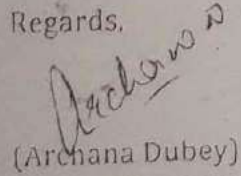 Regards,
Archana D
(Archana Dubey)